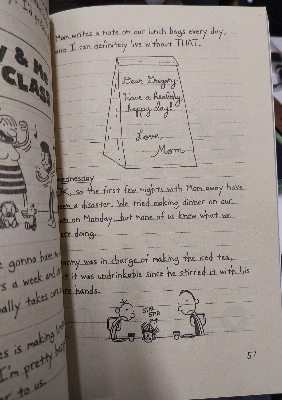 I'd
y & Me
CLASS
e gonna have
's a week and
ally takes
es is making
I'm pretty
er to us.
Mom writes a note on our lunch bags every day,
and I can definitely live without THAT.
Dear Gregory,
Have a healthy,
happy day!
Love,
Mom
Wednesday
OK, so the first few nights with Mom away have
been a disaster. We tried making dinner on our
own on Monday, but none of us knew what we
were doing.
Manny was in charge of making the iced tea,
but it was undrinkable since he stirred it with his
bare hands.
STIR
STIR